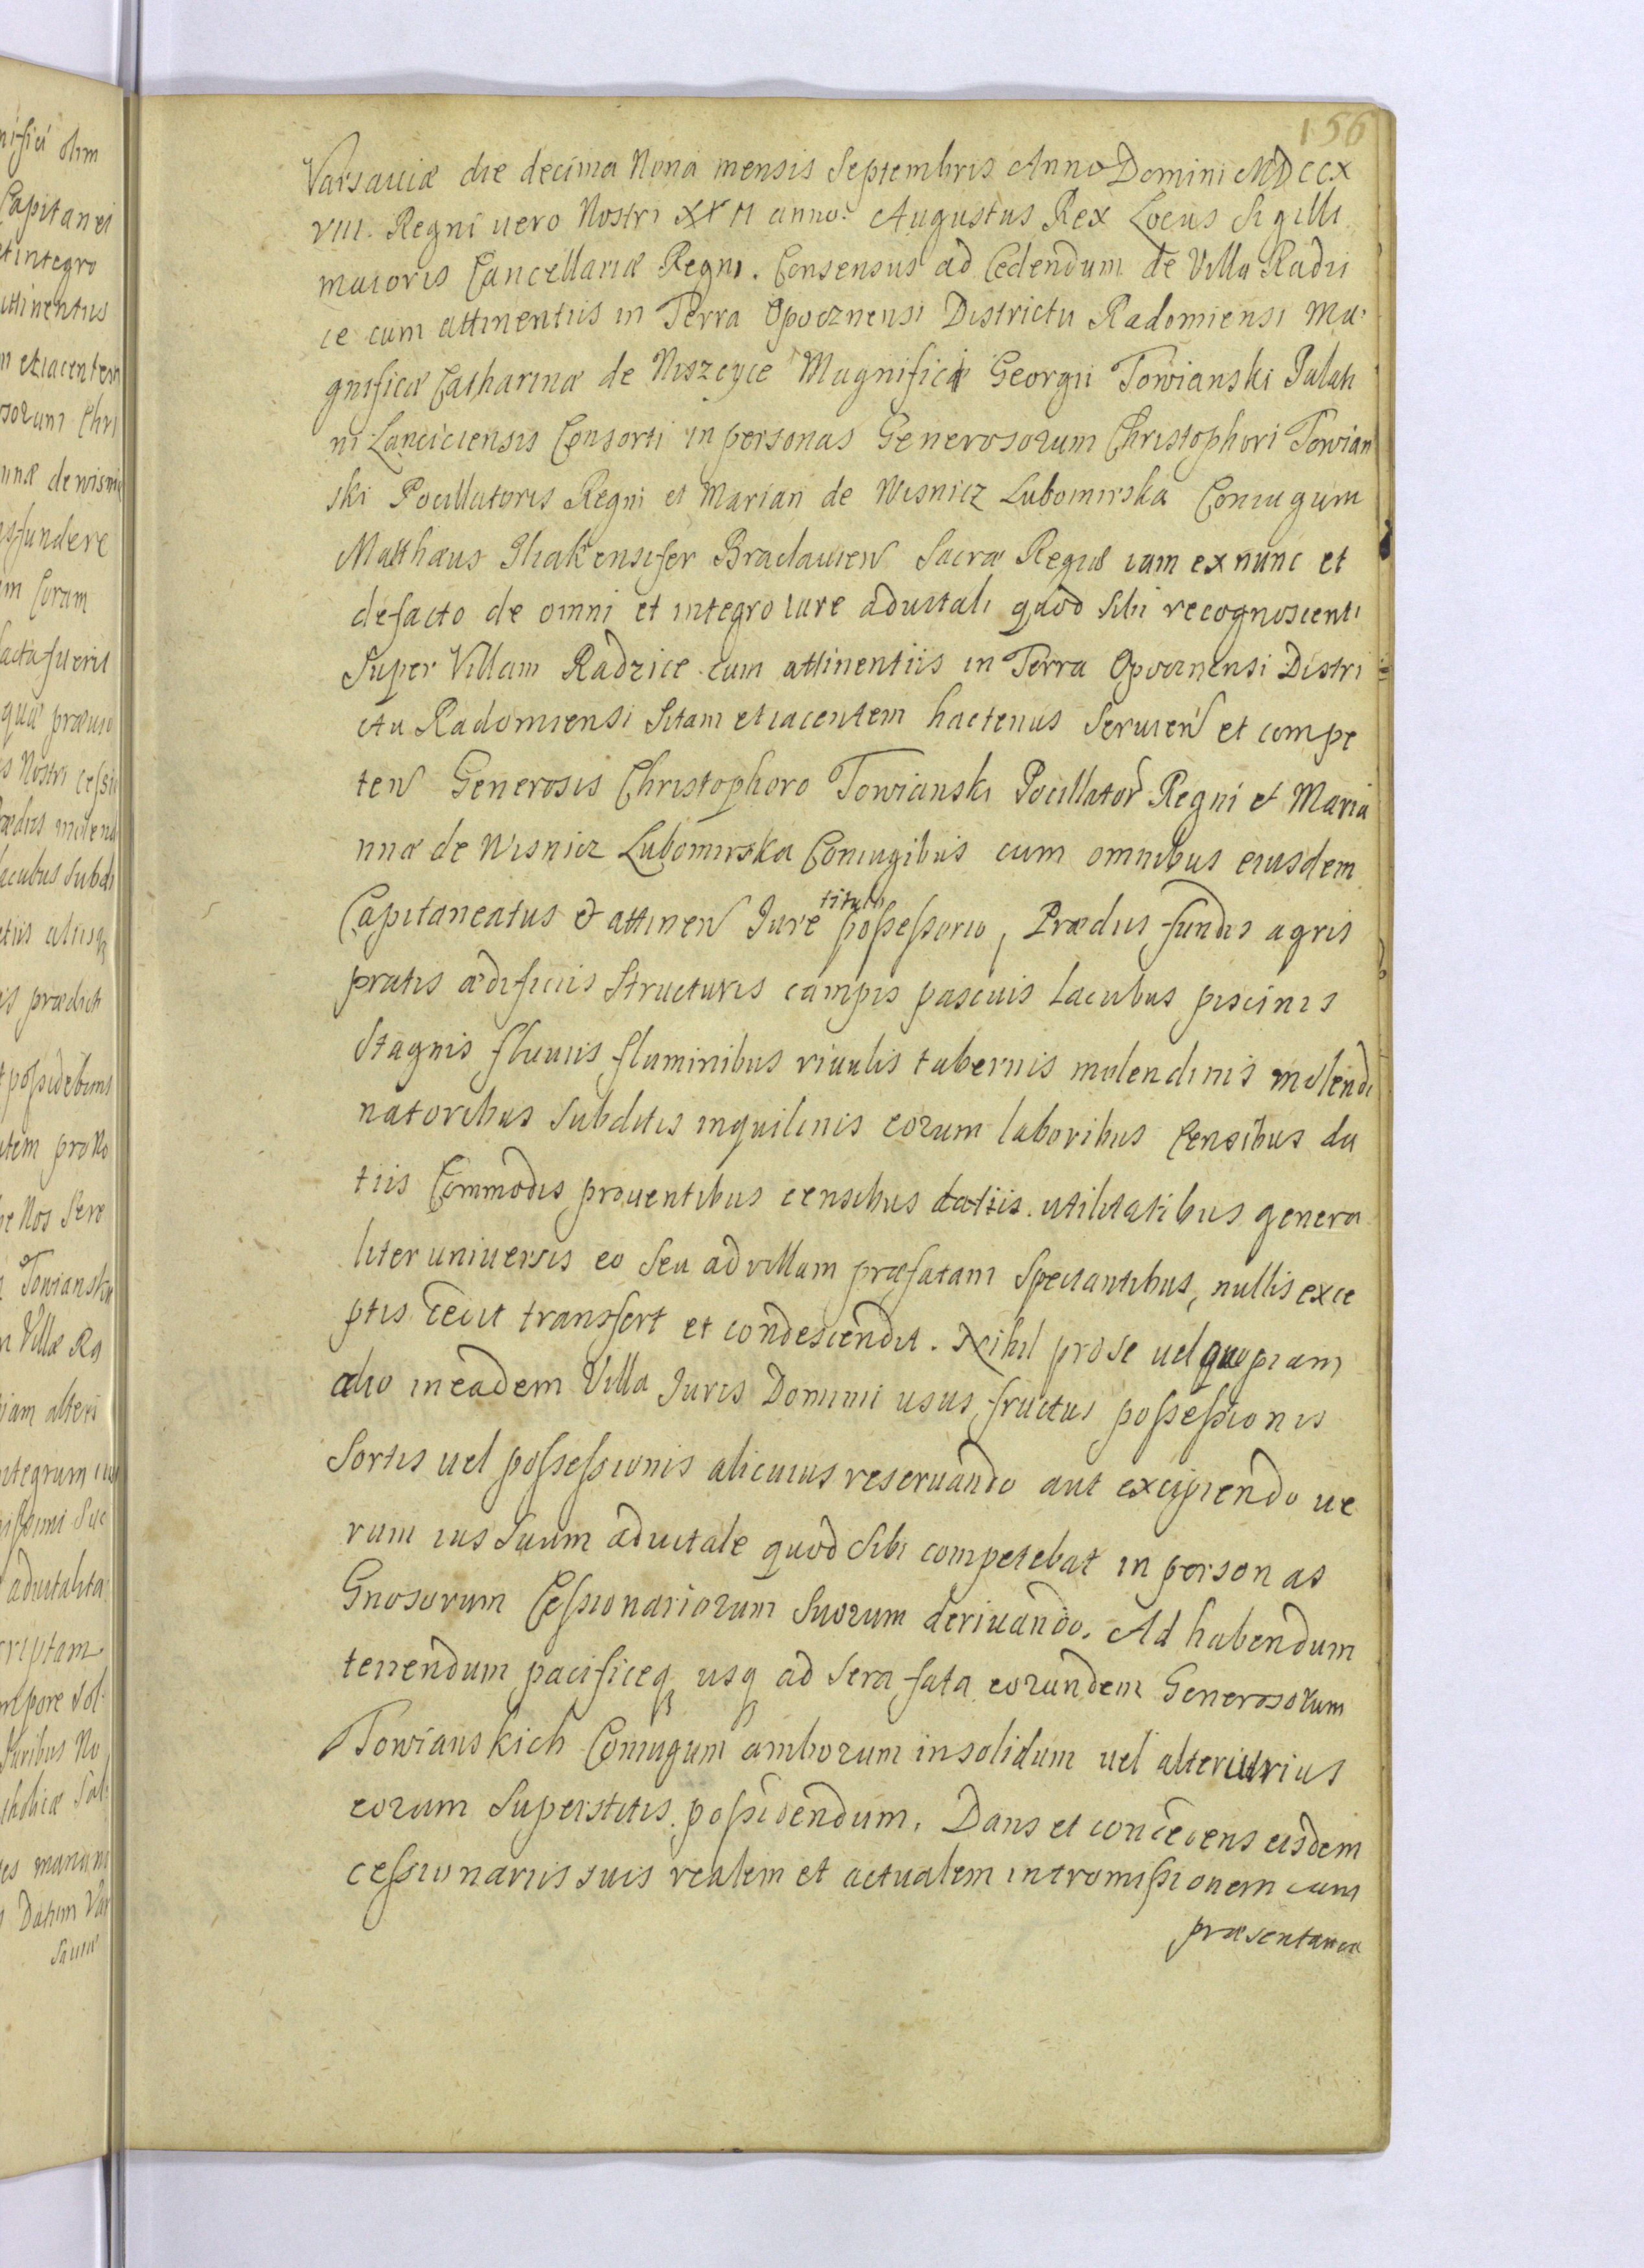 156
Varsaviæ die decima Nona mensis Septembris Anno Domini MDCCX
VIII. Regni uero Nostri XXII anno. Augustus Rex Locus Sigilli
maioris Cancellariæ Regni. Consensus ad Cedendum de Villa Radzi
ce cum attinentiis in Terra Opocznensi Districtu Radomiensi Ma
gnificæ Catharinæ de Niszcyce Magnifici Georgii Towianski Palati
ni Lanciciensis Consorti in personas Generosorum Christophori Towian
ski Pocillatoris Regni et Marian de Wisnicz Lubomirska Coniugum
Matthæus Ensifer Braclauien Sacræ Regiæ iam ex nunc et
defacto de omni et integro iure aduitali quod sibi recognoscenti
Super Villam Radzice cum attinentiis in Terra Opocznensi Distri
ctu Radomiensi Sitam et iacentem hactenus seruien et compe
ten Generosis Christophoro Towianski Pocillator Regni et Maria
nnæ de Wisnicz Lubomirska Coniugibus cum omnibus eiusdem
Capitaneatus et attinen Iure tituli possessorio, Prædiis fundis agris
pratis ædificiis Structuris campis pascuis Lacubus piscinis
Stagnis fluuiis fluminibus riuulis tabernis molendinis molendi
natoribus Subditis inquilinis eorum laboribus Censibus da
tiis Commodis prouentibus censibus datiis utilitatibus genera
liter uniuersis eo seu ad villam præfatam Spectantibus, nullis exce
ptis cedit transfert et condescendit. Nihil pro se uel quopiam
alio in eadem Villa Iuris Dominii usus fructus possessionis
Sortis uel possessionis alicuius reseruando aut excipiendo ue
rum ius Suum aduitale quod Sibi competebat in personas
Gnosorum Cessionariorum Suorum deriuando. Ad habendum
tenendum pacificeq usq ad sera fata eorundem Generosorum
Towianskich Coniugum amborum insolidum uel alteriutrius
eorum Superstitis possidendum. Dans et concedens eisdem
cessionariis suis realem et actualem intromissionem cum
præsentanea